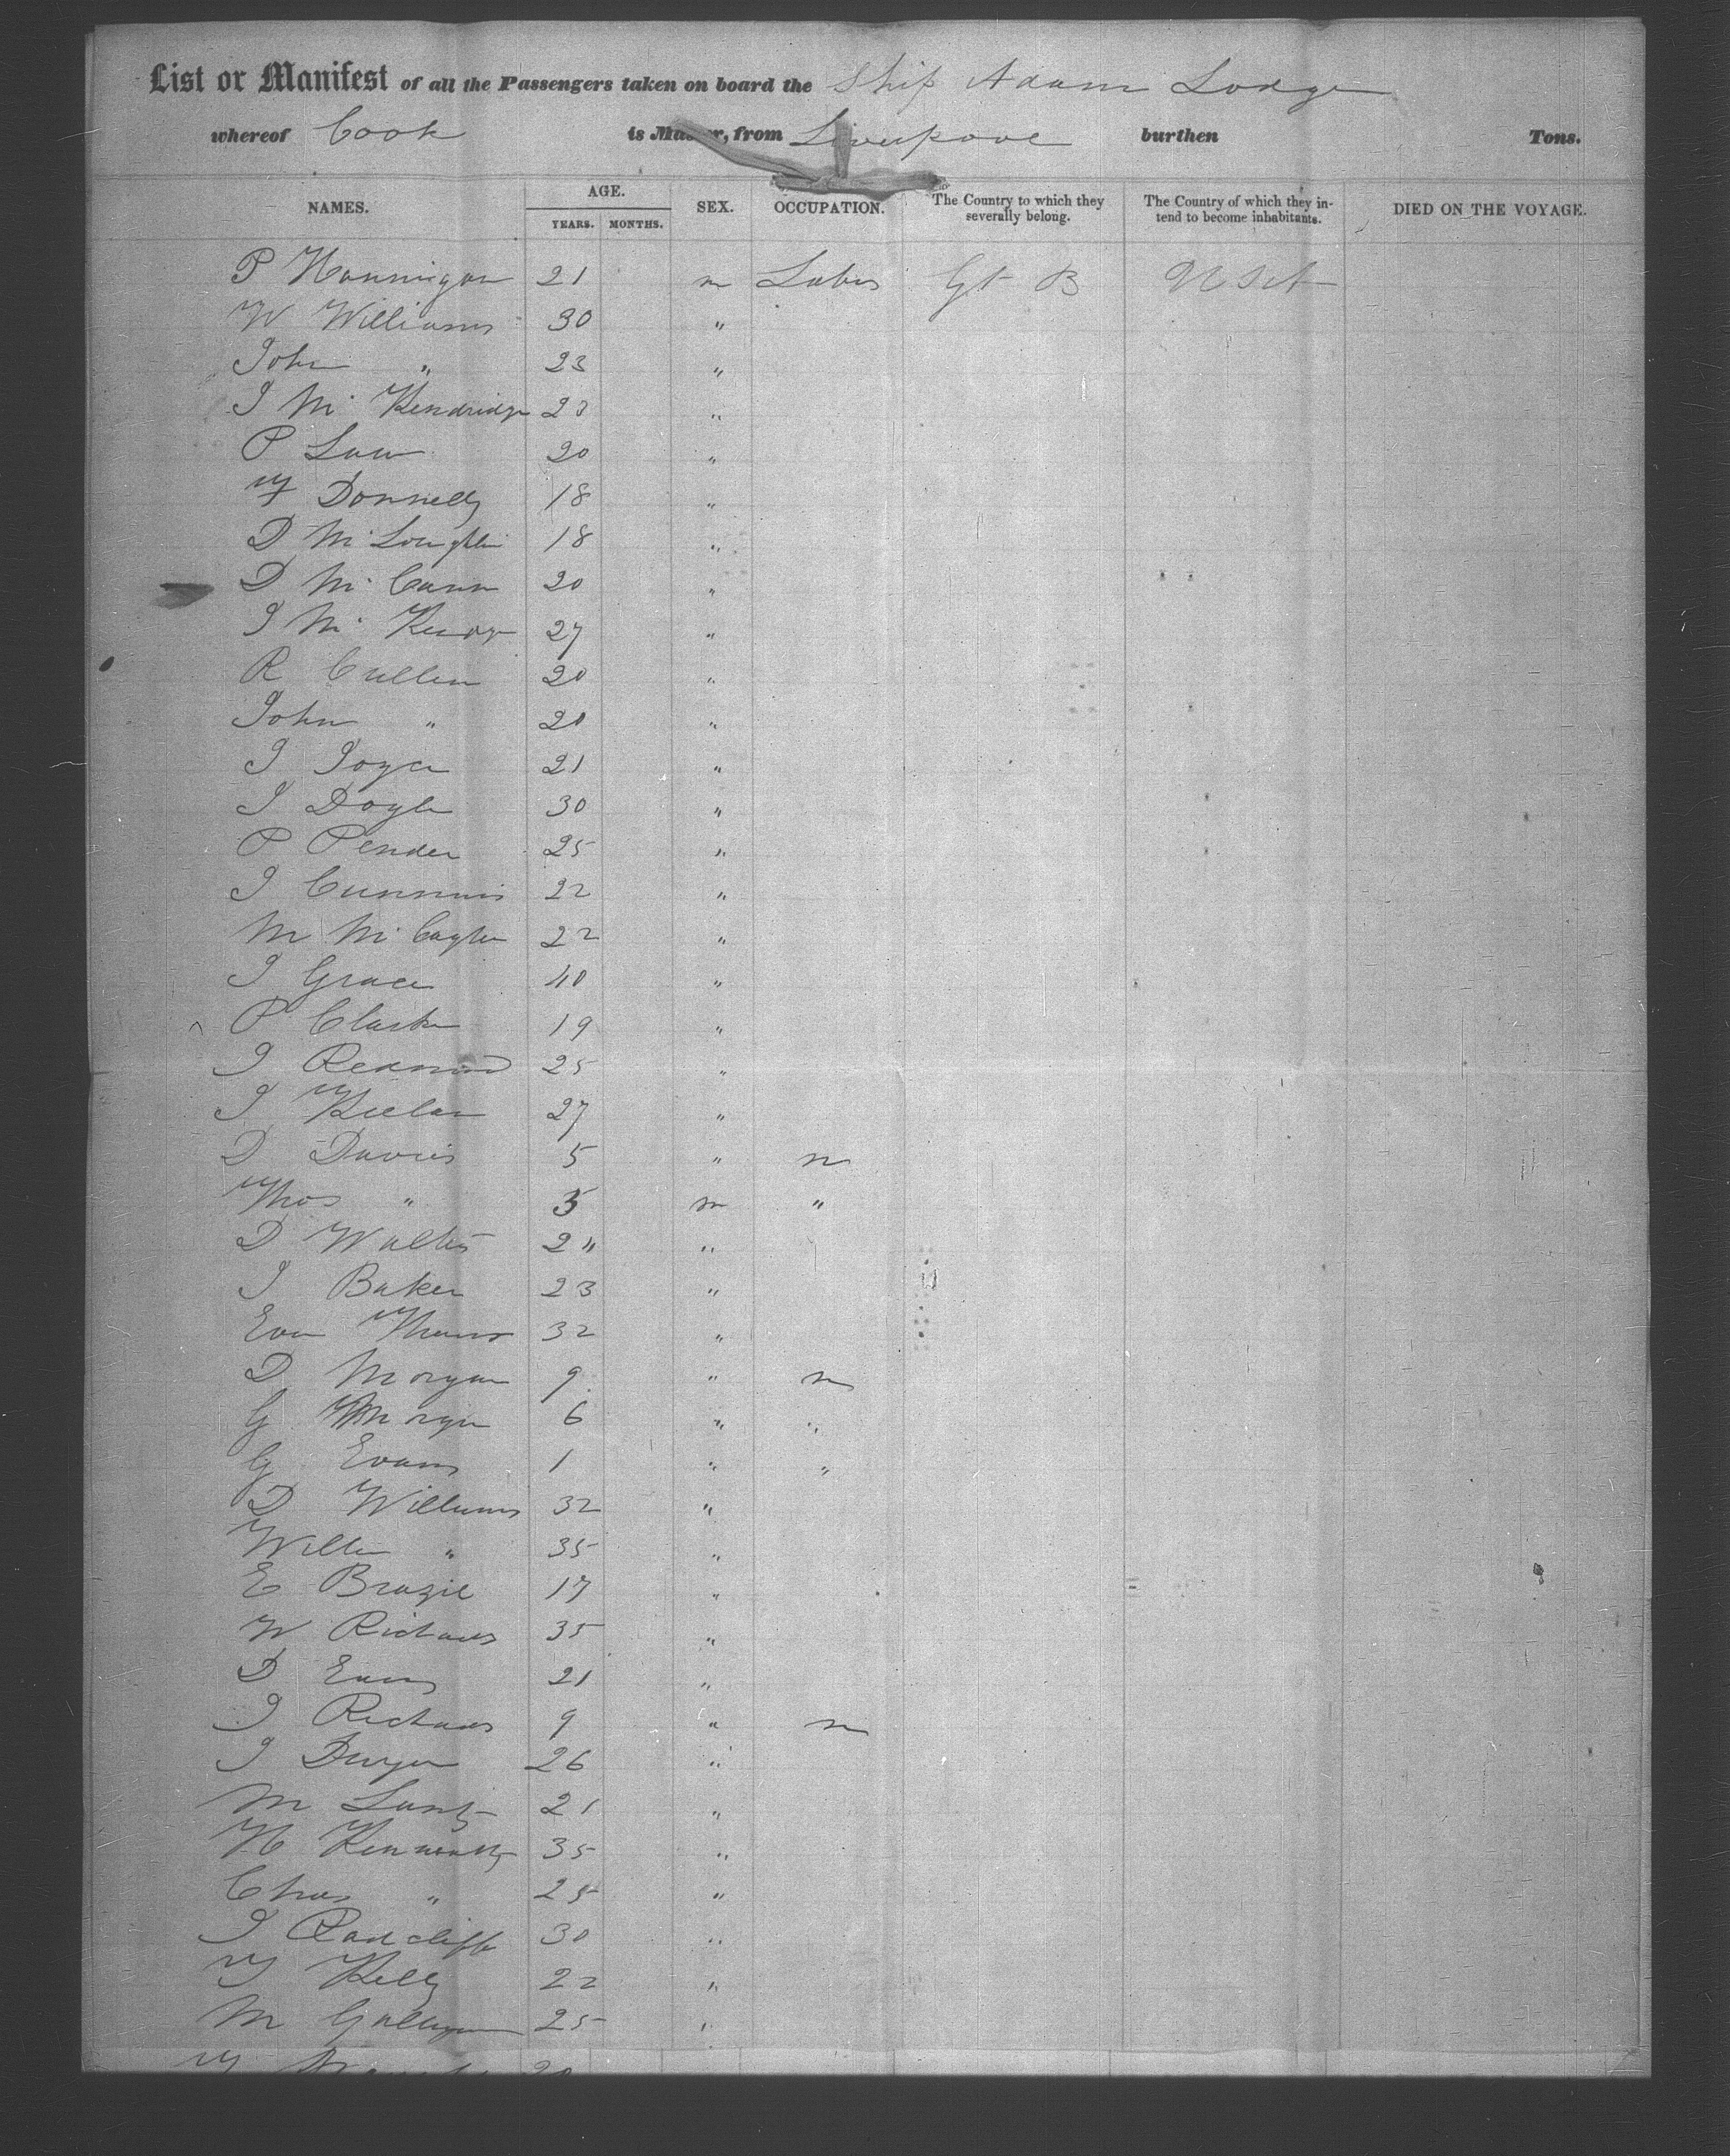 List or Manifest of all the Passengers taken on board the Ship Adam Lodge
whereof Cook is Master, from Liverpool burthen Tons.
NAMES. AGE. YEARS. MONTHS. SEX. OCCUPATION. The Country to which they severally belong. The Country of which they intend to become inhabitants. DIED ON THE VOYAGE.
P Hannigan 21 m Labor Gt B U St
W Williams 30 "
John " 23 "
J Mc Kendridge 23 "
P Law 20 "
T Donnelly 18 "
D Mc Loughlin 18 "
D Mc Cann 20 "
J Mc 27 "
R Cullen 20 "
John " 20 "
J Joyce 21 "
J Doyle 30 "
P Pender 25 "
J Cummins 22 "
M 22 "
J Grace 40 "
P Clarke 19 "
J Redmond 25 "
J Keelan 27 "
D Davies 5 " n
Thos " 3 m "
D Walters 2 " "
J Baker 23 "
Evan Thomas 32 "
D Morgan 9 " n
G Morgan 6 " "
G Evans 1 " "
D Williams 32 "
" 35 "
E Brazil 17 "
W Richards 35 "
D Evans 21 "
J Richards 9 " n
J Dwyer 26 "
M 21 "
H Kenworthy 35 "
Chas " 25 "
J Radcliffe 30 "
T Kelly 22 "
M 25 "
20